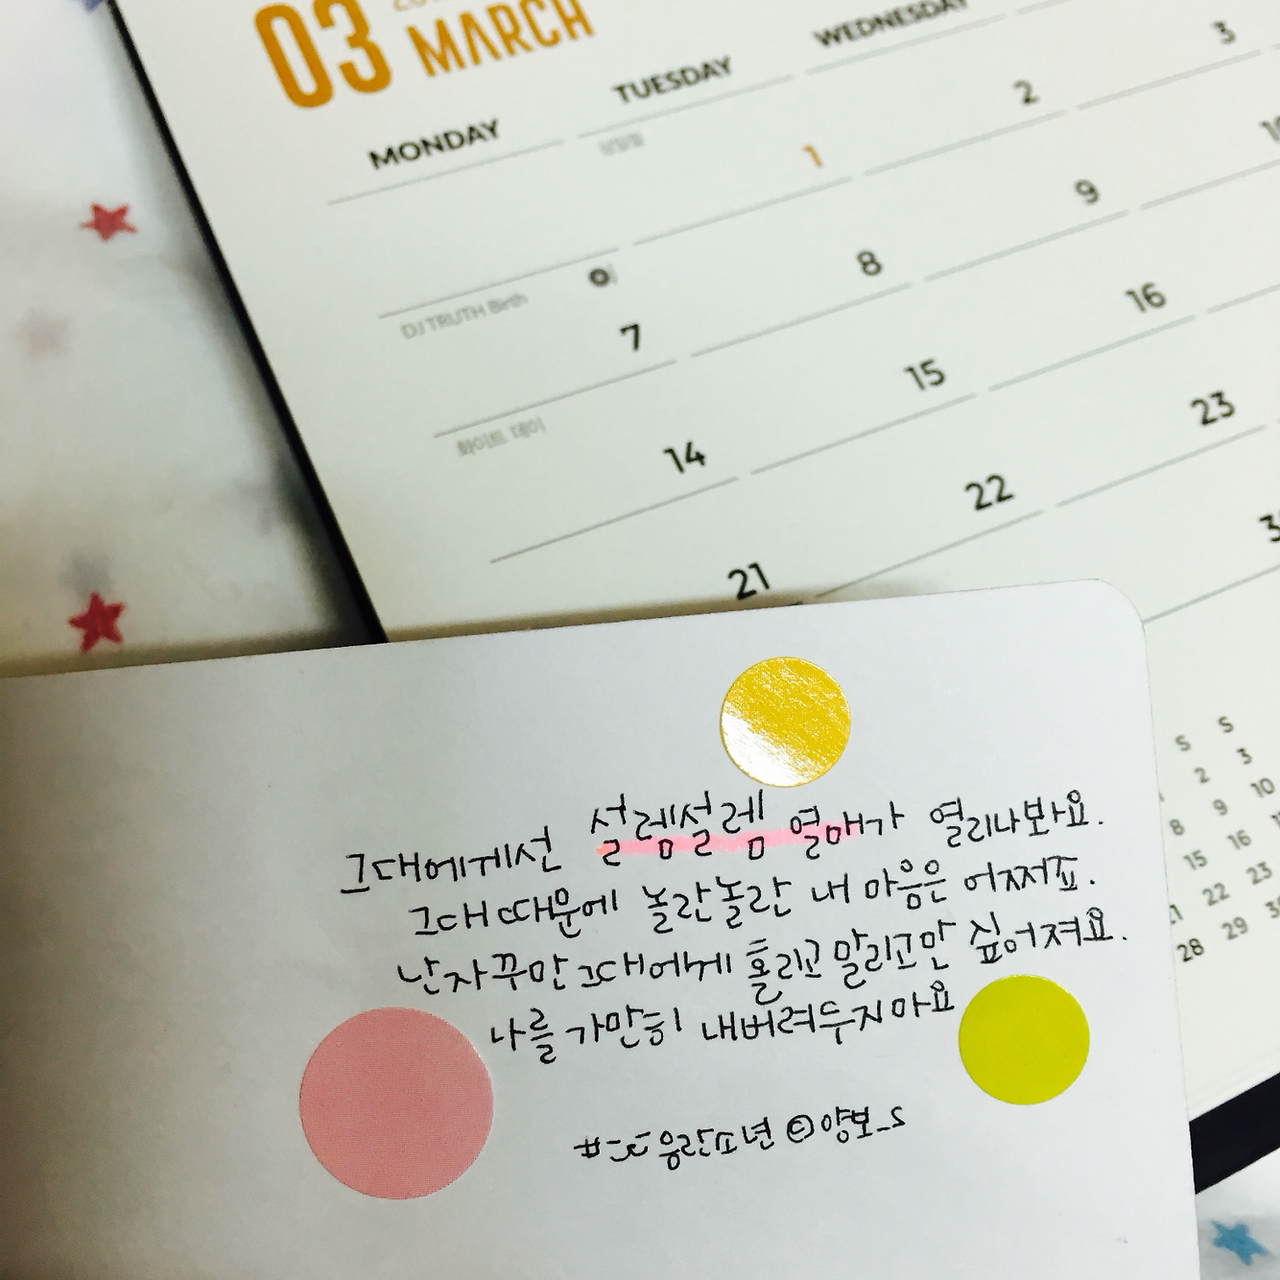 03
MARCH
MONDAY
TUESDAY
WEDNESDAY
1
2
3
DJ TRUTH Birth
7
8
9
화이트 데이
14
15
16
21
22
23
S S
2 3
8 9 10
15 16
22 23
28 29
그대에게선 설렘설렘 열매가 열리나봐요.
그대 때문에 놀란놀란 내 마음은 어쩌죠.
난 자꾸만 그대에게 홀리고 말리고만 싶어져요.
나를 가만히 내버려두지마요